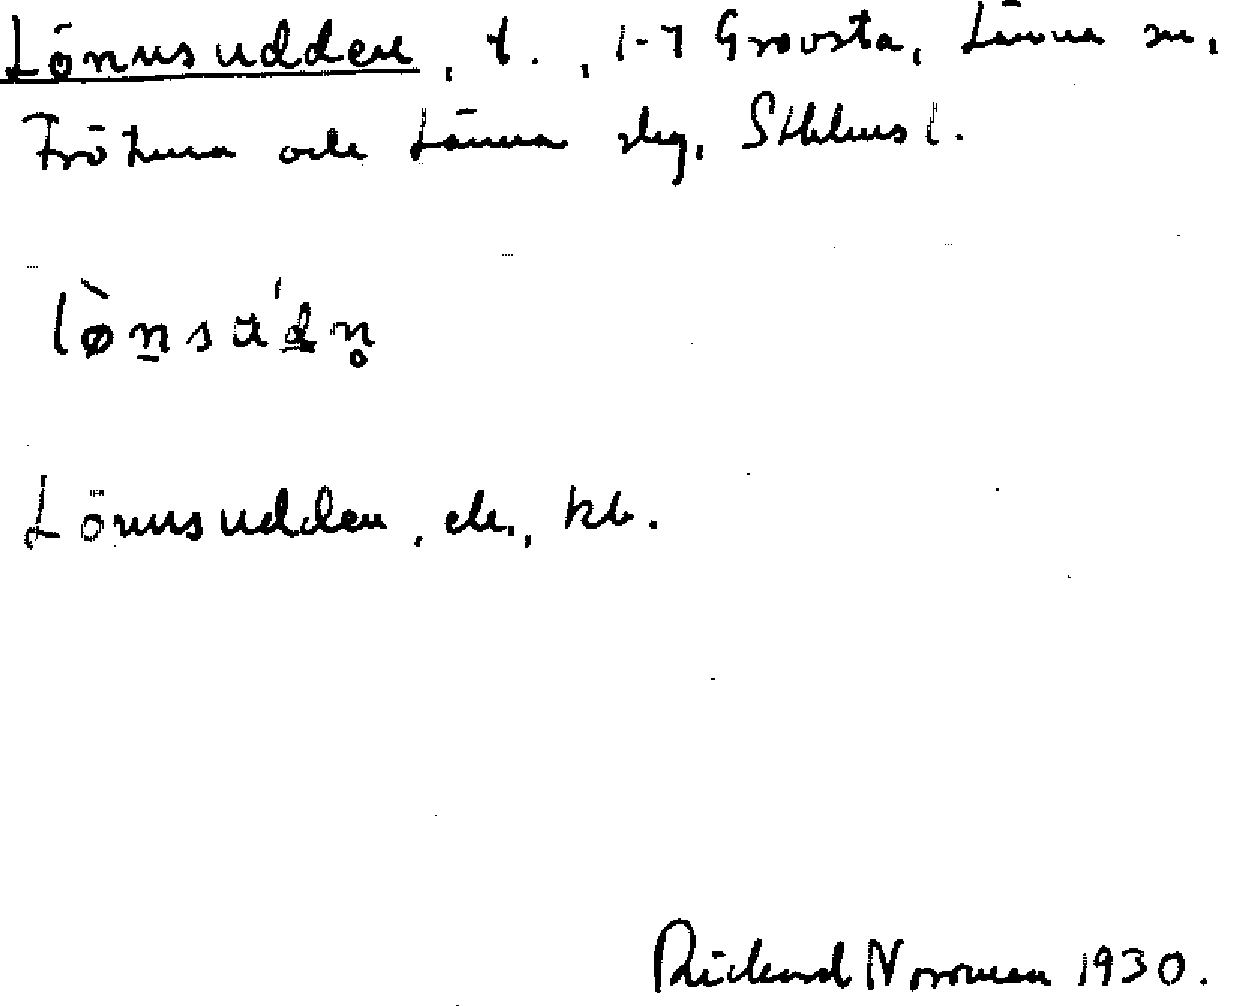 Lönnsudden, t., 1-7 Grovsta, Länna sn,
Frötuna och Länna skg, Sthlms l.
lø̀nsud́n̥
Lönnsudden, ek.
Rickard Norrman 1930.